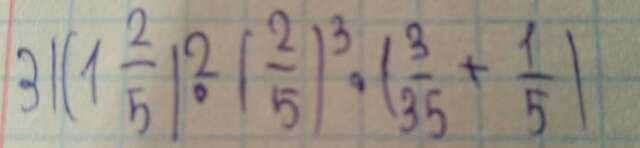 3) (1 2/5)² : (2/5)³ · (3/35 + 1/5)